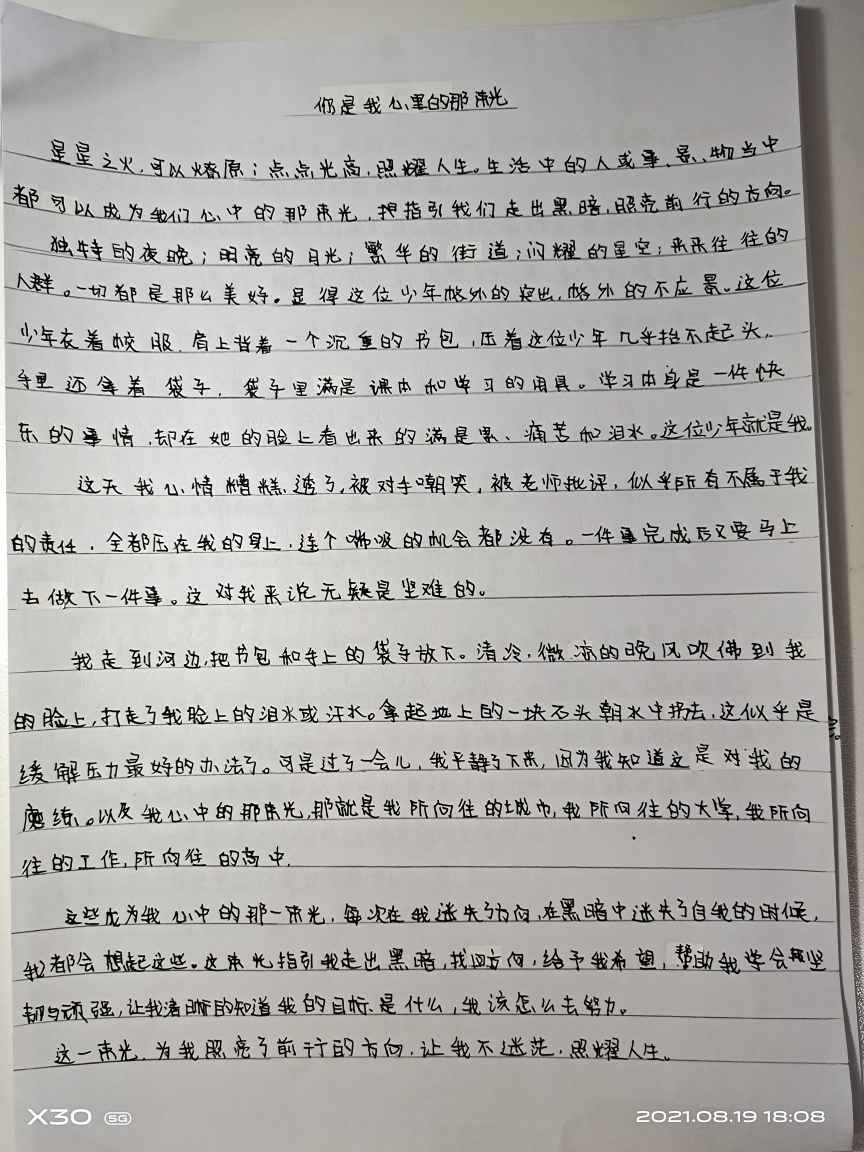 你是我心里的那束光
星星之火,可以燎原;点点光亮,照耀人生。生活中的人或事、景、物当中
都可以成为我们心中的那束光,指引我们走出黑暗,照亮前行的方向。
独特的夜晚;明亮的月光;繁华的街道;闪耀的星空;来来往往的
人群。一切都是那么美好。显得这位少年格外的突出,格外的不应景。这位
少年衣着校服,肩上背着一个沉重的书包,压着这位少年几乎抬不起头,
手里还拿着袋子,袋子里满是课本和学习的用具。学习本身是一件快
乐的事情,却在她的脸上看出来的满是累、痛苦和泪水。这位少年就是我。
这天我心情糟糕透了,被对手嘲笑,被老师批评,似乎所有不属于我
的责任,全都压在我的身上,连个喘吸的机会都没有。一件事完成后又要马上
去做下一件事。这对我来说无疑是坚难的。
我走到河边,把书包和手上的袋子放下。清冷,微凉的晚风吹佛到我
的脸上,打走了我脸上的泪水或汗水。拿起地上的一块石头朝水中拐去,这似乎是
缓解压力最好的办法了。可是过了一会儿,我平静了下来,因为我知道这是对我的
磨练。以及我心中的那束光,那就是我所向往的城市,我所向往的大学,我所向
往的工作,所向往的高中.
这些成为我心中的那一束光,每次在我迷失了方向,在黑暗中迷失了自我的时候,
我都会想起这些。这束光指引我走出黑暗,找回方向,给予我希望,帮助我学会坚
韧与顽强,让我清晰的知道我的目标是什么,我该怎么去努力。
这一束光,为我照亮了前行的方向,让我不迷茫,照耀人生。
X30 5G
2021.08.19 18:08